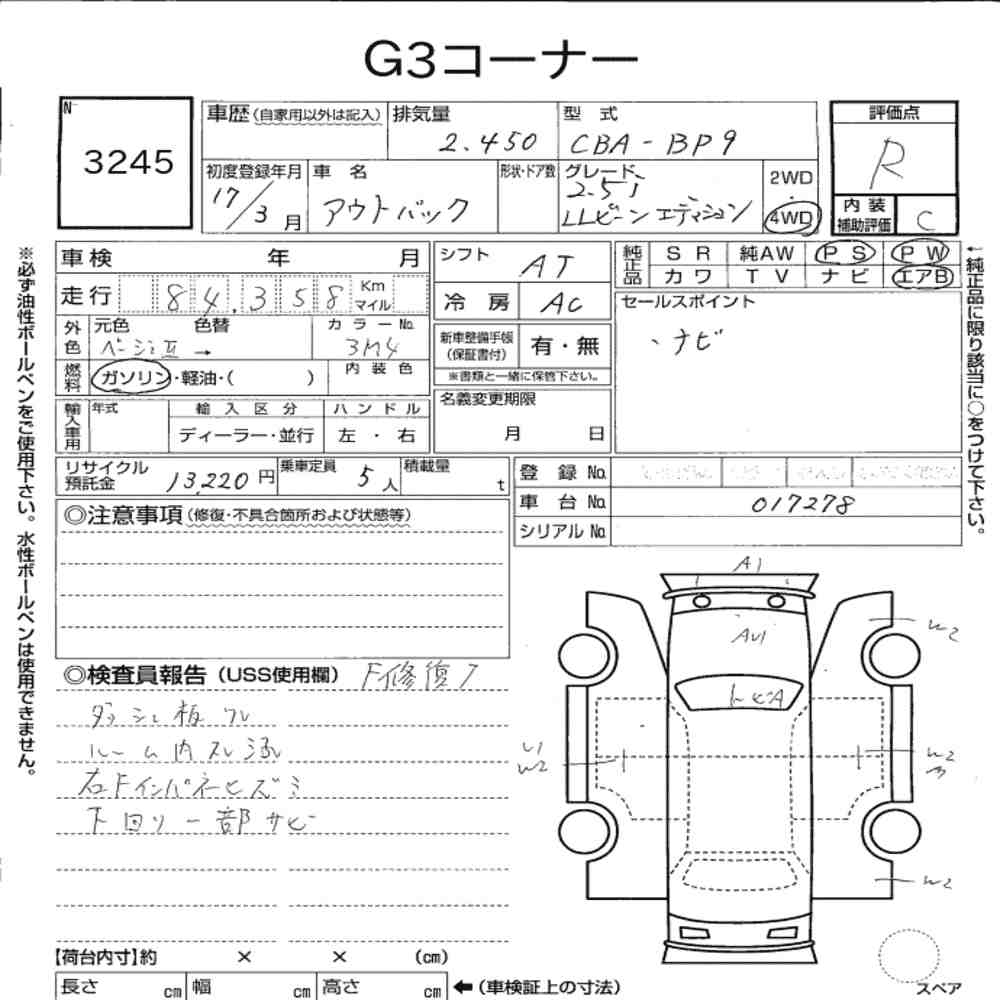 G3コーナー
N
3245
車歴(自家用以外は記入) 排気量 2.450 型式 CBA-BP9
初度登録年月 17/3月 車名 アウトバック 形状・ドア数 グレード 2.5i LLビーンエディション 2WD 4WD
評価点 R
内装補助評価 C
車検 年 月
走行 84,358 Km マイル
外色 元色 ベージュⅡ → 色替 カラーNo. 3M4
燃料 ガソリン・軽油・( ) 内装色
輸入車用 年式 輸入区分 ディーラー・並行 ハンドル 左・右
シフト AT
冷房 AC
新車整備手帳(保証書付) 有・無
※書類と一緒に保管下さい。
名義変更期限 月 日
純正品 SR 純AW PS PW
カワ TV ナビ エアB
セールスポイント
、ナビ
リサイクル預託金 13,220円 乗車定員 5人 積載量 t
登録No.
車台No. 017278
シリアルNo.
◎注意事項(修復・不具合箇所および状態等)
◎検査員報告(USS使用欄) F修復ク
ダッシュ板ワレ
ルーム内スレ汚レ
右Fインパネヒズミ
下回リ一部サビ
A1
AU1
トビA
W2
U1
W2
W2
W2
【荷台内寸】約 × × (cm)
長さ cm 幅 cm 高さ cm ←(車検証上の寸法)
スペア
※必ず油性ボールペンをご使用下さい。水性ボールペンは使用できません。
←純正品に限り該当に○をつけて下さい。